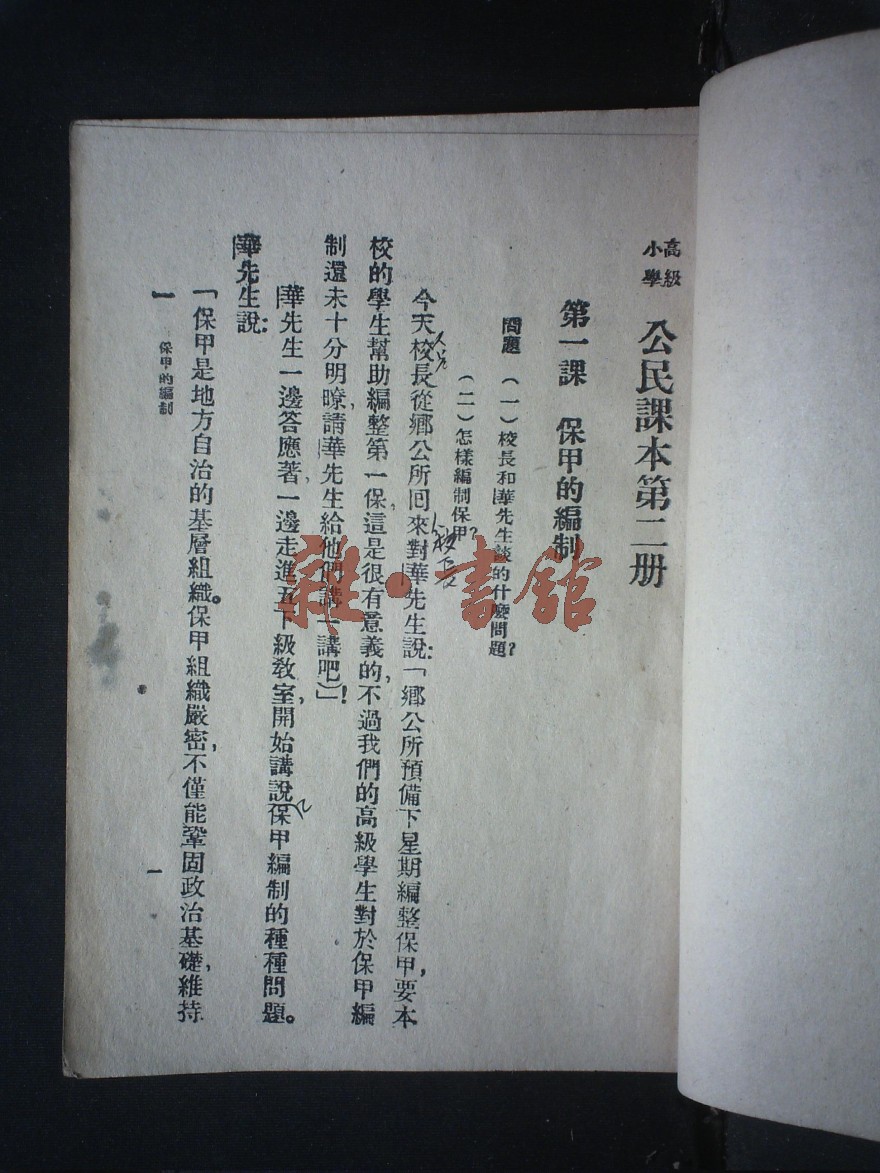 高級
小學
公民課本第二册
第一課　保甲的編制
問題　(一)校長和華先生談的什麼問題?
(二)怎樣編制保甲?
今天校長從鄉公所回來對華先生說:「鄉公所預備下星期編整保甲,要本
校的學生幫助編整第一保,這是很有意義的,不過我們的高級學生對於保甲編
制還未十分明暸,請華先生給他們講一講吧」!
華先生一邊答應著,一邊走進五下級敎室,開始講說保甲編制的種種問題。
華先生說:
「保甲是地方自治的基層組織。保甲組織嚴密,不僅能鞏固政治基礎,維持
一　保甲的編制
一
雜·書館